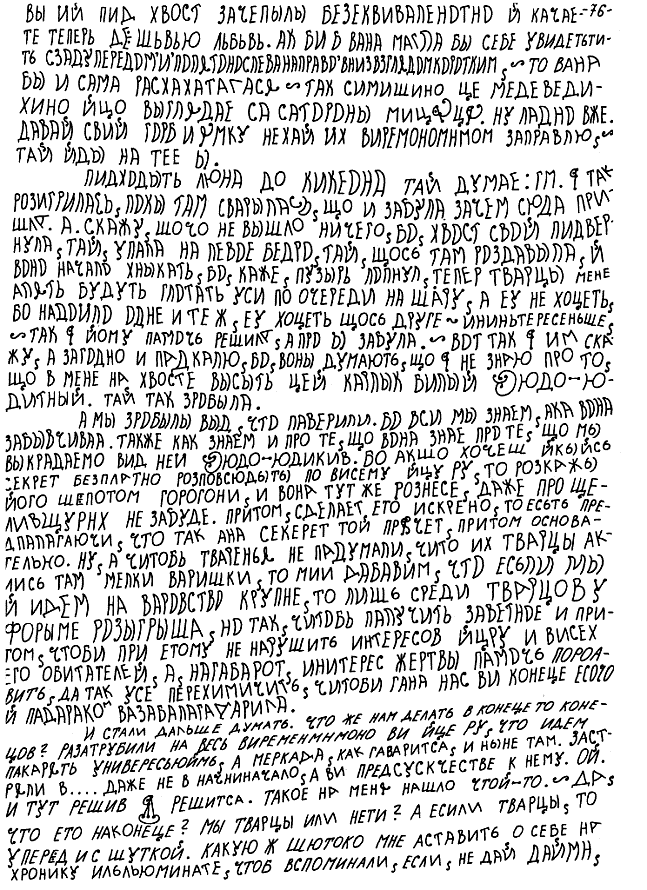 ВЫ ИЙ ПИД ХВОСТ ЗАЧЕПЫЛЫ БЕЗЕКВИВАЛЕНDТНD Й КАЧАЕ- -76-
ТЕ ТЕПЕРЬ ДЕШЬВЬЮ ЛЬБЬВЬ. АК БИ Б ВАНА МАГЛА БЫ СЕБЕ УВИДЕТЬТИ-
ТЬ СЗАДУ ПЕРЕДDМ И ПDПЯТDНDСЛЕВАНАПРАВD ВНИЗ ВЗГЛЯДDМ КDРDТКИМ, ~ ТО ВАНА
БЫ И САМА РАСХАХАТАГАСЯ ~ ТАК СИМИШИНО ЦЕ МЕДЕВЕДИ-
ХИНО ЙЦО ВЫГЛЯДАЕ СА САТDРDНЫ НУ ЛАДНО ВЖЕ.
ДАВАЙ СВИЙ ГDРБ И УМКУ НЕХАЙ ИХ ВИРЕМОНОМНМОМ ЗАПРАВЛЮ, ~
ТАЙ ЙДЫ НА ТЕЕ Ы.
ПИДХОДЫТЬ ЛЮНА ДО КИКЕDНА ТАЙ ДУМАЕ: ГМ. Я ТАК
РОЗИГРИЛАСЬ, ПОКЫ ТАМ СВАРЫЛАСЬ, ЩО И ЗАБУЛА ЗАЧЕМ СЮДА ПРИ-
ШЛА. А. СКАЖУ, ШОЧО НЕ ВЫШЛО НИЧЕГО, БD, ХВDСТ СВDЙ ПИДВЕР-
НУЛА, ТАЙ, УПАЛА НА ПЕВDЕ БЕДРD, ТАЙ, ЩОСЬ ТАМ РDЗДАВЫЛА, Й
ВDНD НАЧАЛD ХНЫКАТЬ, БD, КАЖЕ, ПУЗЫРЬ ЛDПНУЛ, ТЕПЕР ТВАРЦЫ МЕНЕ
АПЯТЬ БУДУТЬ ГЛDТАТЬ УСИ ПО ОЧЕРЕДИ НА ШАРУ, А ЕУ НЕ ХОЦЕТЬ,
БО НАДDИЛD DДНЕ И ТЕ Ж, ЕУ ХОЦЕТЬ ЩОСЬ ДРУГЕ ~ ИНИНЬТЕРЕСЕНЬШЕ,
~ ТАК Я ЙОМУ ПАМDЧЬ РЕШИЛА, А ПРD Ы ЗАБУЛА. ~ ВDТ ТАК Я ИМ СКА-
ЖУ, А ЗАГОДНО И ПАДКАЛЮ, БD, ВОНЫ ДУМАЮТЬ, ЩО Я НЕ ЗНАЮ ПРО ТО,
ЩО В МЕНЕ НА ХВОСТЕ ВЫСЫТЬ ЦЕЙ КАПЛЫК БИЛЫЙ ЮДО-Ю-
ДИТНЫЙ. ТАЙ ТАК ЗРDБЫЛА.
А МЫ ЗРDБЫЛЫ ВЫД, ЧТD ПАВЕРИЛИ. БD ВСИ МЫ ЗНАЕМ, АКА ВDНА
ЗАБЫВЧИВАЯ. ТАКЖЕ КАК ЗНАЕМ И ПРО ТЕ, ЩО ВDНА ЗНАЕ ПРD ТЕ, ЩО МЫ
ВЫКРАДАЕМО ВИД НЕИ ЮДО-ЮДИКИВ. БО АКЩО ХОЧЕШ ЙКЫЙСЬ
СЕКРЕТ БЕЗПЛАТНО РОЗПОВСЮДЫТЫ ПО ВИСЕМУ ЙЦУ РУ, ТО РОЗКАЖЫ
ЙОГО ШЕПОТОМ ГОРОГОНИ, И ВОНА ТУТ ЖЕ РОЗНЕСЕ, ДАЖЕ ПРО ЩЕ-
ЛИВЩУРНХ НЕ ЗАБУДЕ. ПРИТОМ, СДЕЛАЕТ ЕТО ИСКРЕНО, ТО ЕСЬТЬ ПРЕ-
ДПАЛАГАЮЧИ, ЧТО ТАК АНА СЕКЕРЕТ ТОЙ ПРЯЧЕТ, ПРИТОМ ОСНОВА-
ТЕЛЬНО. НУ, А ЧИТОБЬ ТВАЧЕНЬЯ НЕ ПАДУМАЛИ, ЧИТО ИХ ТВАРЦЫ АК-
ЛИСЬ ТАМ МЕЛКИ ВАРИШКИ, ТО МИИ ДАБАВИМ, ЧТD ЕСЬЛИ МЫ
Й ИДЕМ НА ВАРОВСТВО КРУПНЕ, ТО ЛИШЬ СРЕДИ ТВАРЦОВ У
ФОРЫМЕ РDЗЫГРЫША, НD ТАК, ЧИТDБЬ ПАЛУЧИТЬ ЗАВЕТНDЕ И ПРИ-
ТОМ, ЧТОБИ ПРИ ЕТОМУ НЕ НАРУШИТЬ ИНТЕРЕСОВ ЙЦРУ И ВИСЕХ
ЕГО ОБИТАТЕЛЕЙ, А, НАГАБАРОТ, ИНИТЕРЕС ЖЕРТВЫ ПАМDЧЬ ПОРОА-
ВИТЬ, ДА ТАК УСЕ ПЕРЕХИМИЧИТЬ, ЧИТОБИ ГАНА НАС ВИ КОНЕЦЕ ЕСОГО
Й ПАДАРАКО ВАЗАБАЛАГАДАРИЛА.
И СТАЛИ ДАЛЬШЕ ДУМАТЬ. ЧТО ЖЕ НАМ ДЕЛАТЬ В КОНЕЦЕ ТО КОНЕ-
ЦОВ? РАЗАТРУБИЛИ НА ВЕСЬ ВИРЕМЕНМНМОНО ВИ ЙЦЕ РУ, ЧТО ИДЕМ
ПАКАРЯТЬ УНИВЕРЕСЬЮЙМЬ, А МЕРКАДА, КАК ГАВАРИТСА, И НЫНЕ ТАМ. ЗАСТ-
РЯЛИ В.... ДАЖЕ НЕ В НАЧНИНАЧАЛО, А ВИ ПРЕДСУСКЧЕСТВЕ К НЕМУ. ОЙ.
И ТУТ РЕШИВ Я РЕШИТСА. ТАКОЕ НА МЕНЯ НАШЛО ЧТОЙ-ТО. ~ ДА,
ЧТО ЕТО НАКОНЕЦЕ? МЫ ТВАРЦЫ ИЛИ НЕТИ? А ЕСИЛИ ТВАРЦЫ, ТО
УПЕРЕД И С ШУТКОЙ. КАКУЮ Ж ШЮТОКО МНЕ АСТАВИТЬ О СЕБЕ НА
ХРОНИКУ ИЛЬЛЬЮМИНАТЕ, ЧТОБ ВСПОМИНАЛИ, ЕСЛИ, НЕ ДАЙ ДАЙМА,